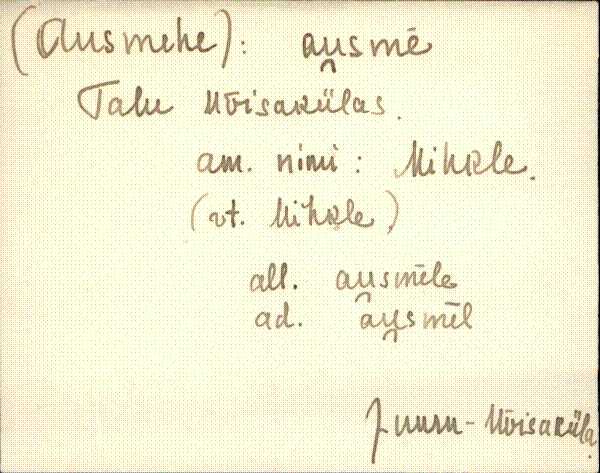 (Ausmehe): au̯smē
Talu Mõisakülas.
am. nimi: Mihkle.
(vt. Mihkle)
all. au̯smēle
ad. au̯smēl
Juuru-Mõisaküla.